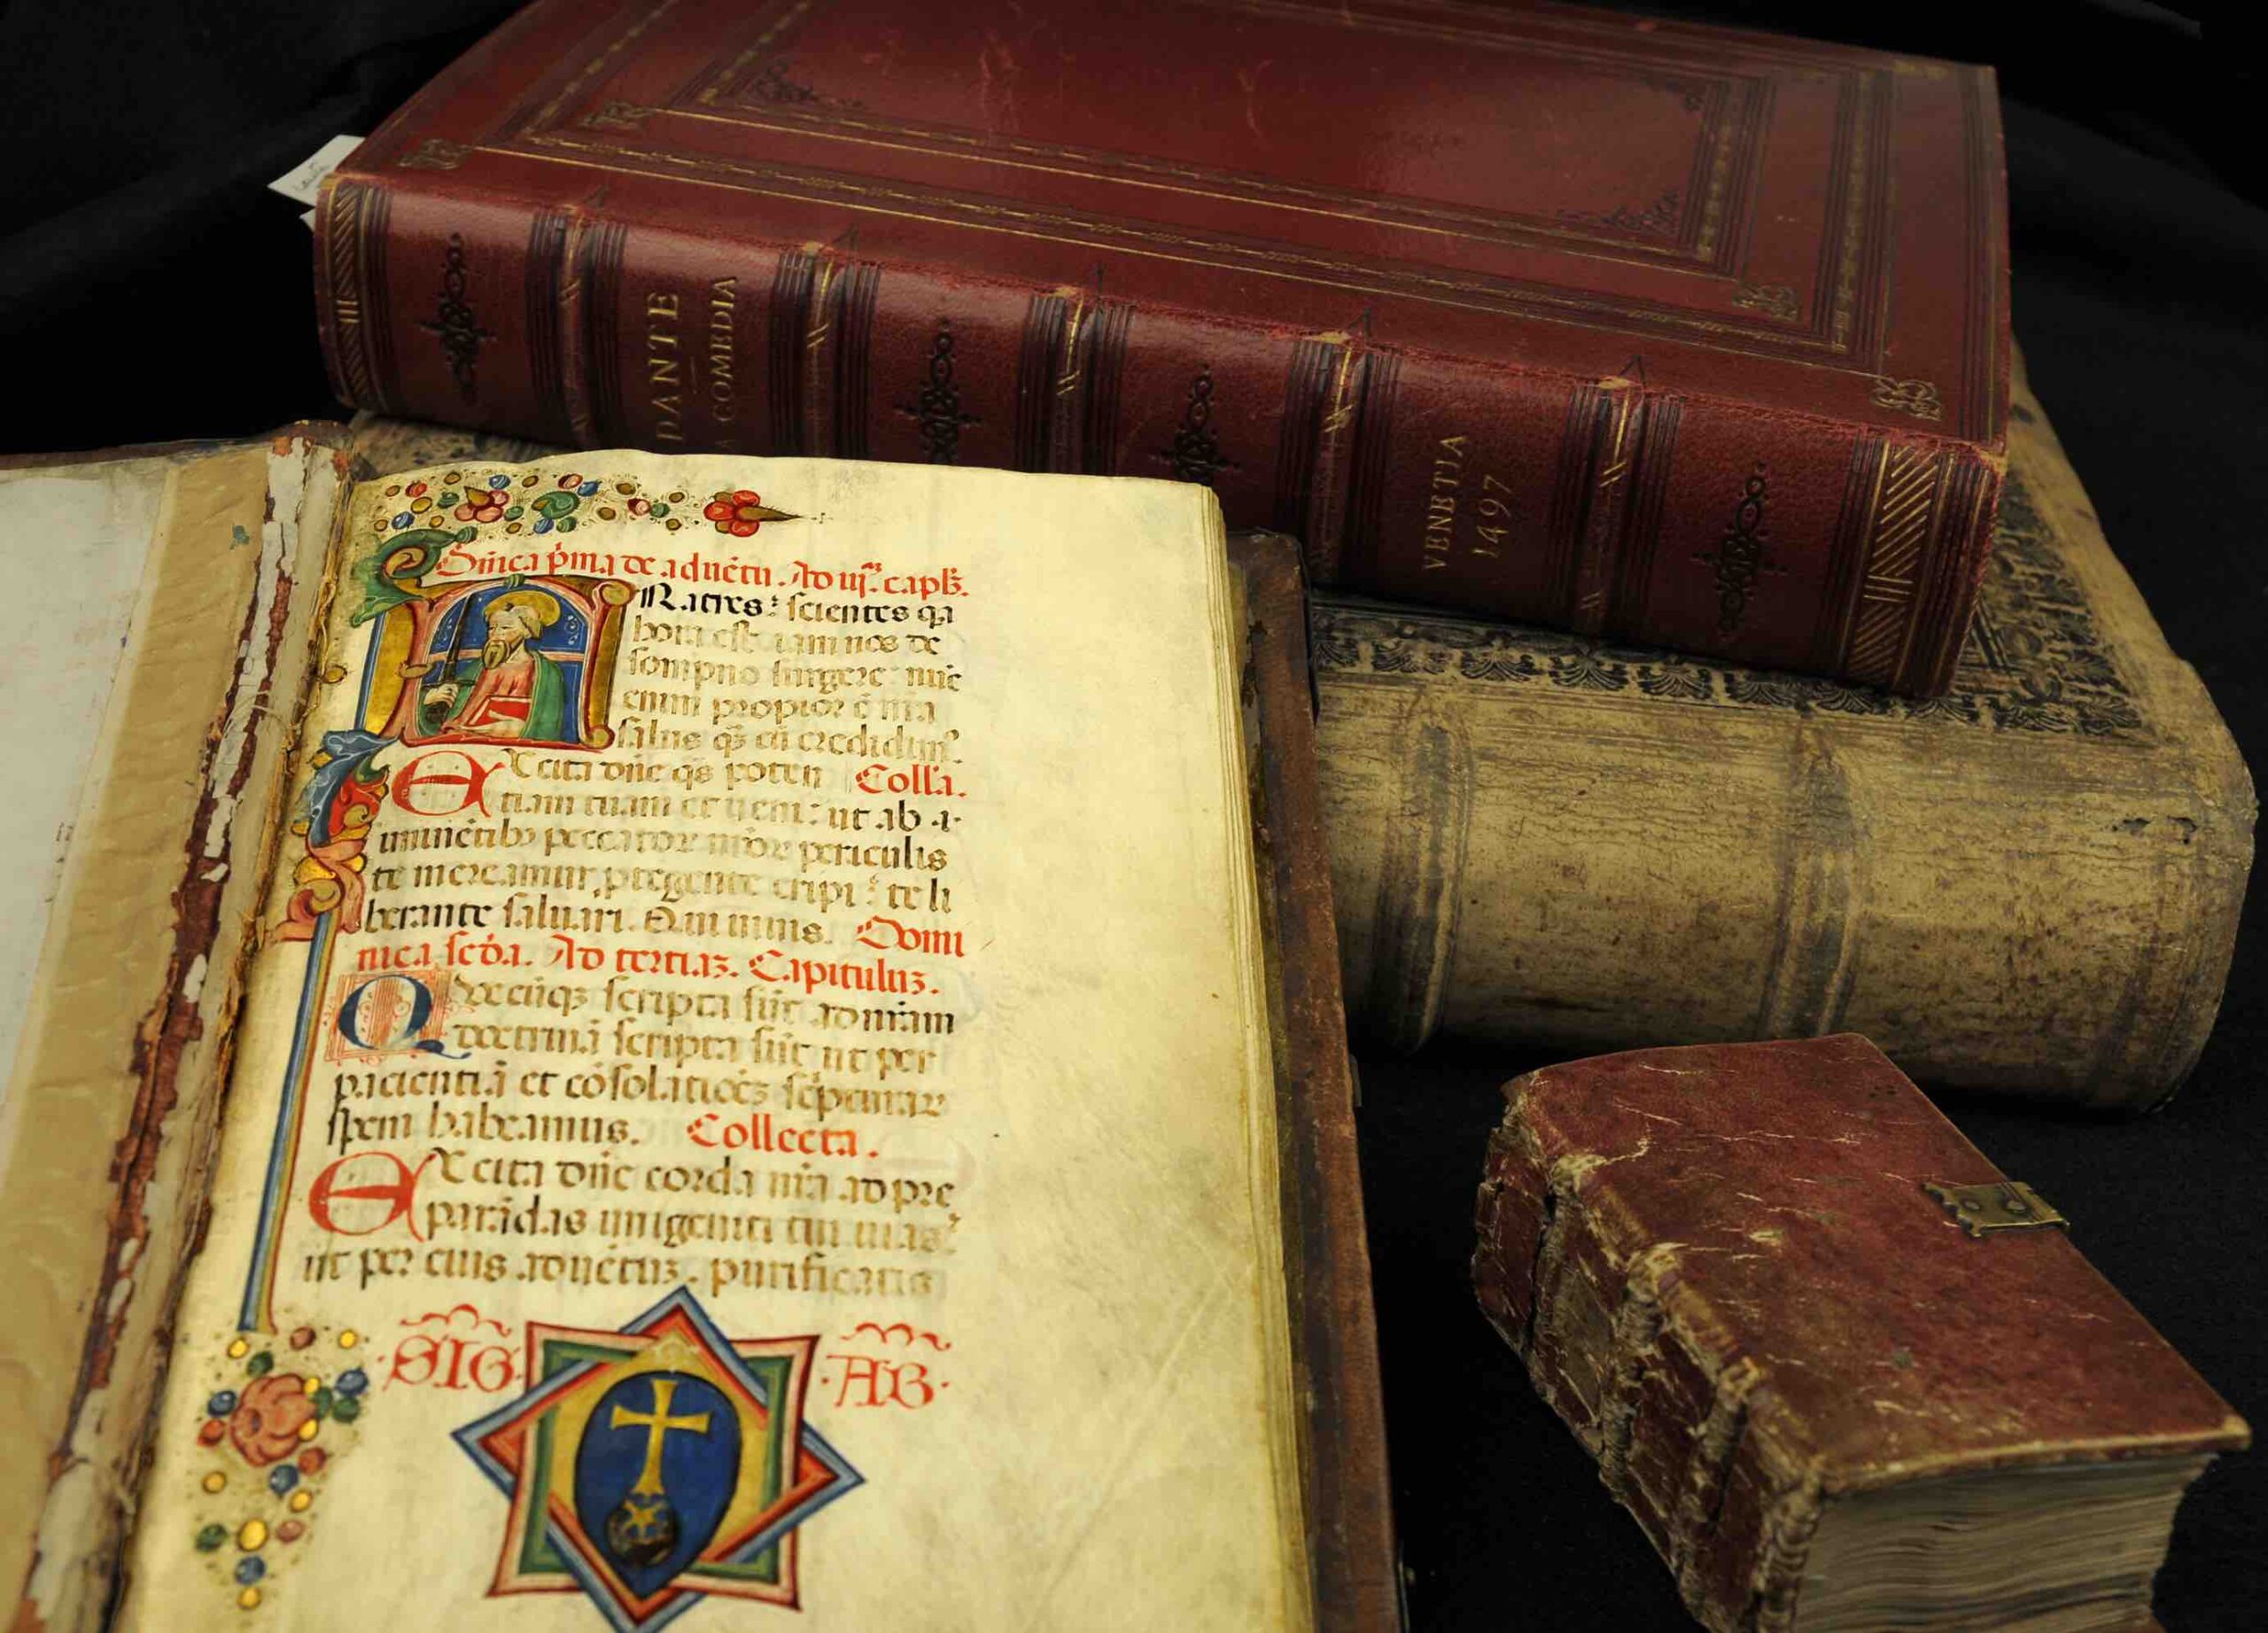 DANTE
A COMEDIA
VENETIA
1497
Dn̄ica p̄ma de aduētu. Ad iij.ᵃᵐ capl̄ȝ.
Ratres: scientes qa
hora est iam nos de
sompno surgere: nūc
enim propior ē nr̄a
salus qȝ cū credidimꝰ.
EXcita dn̄e qs̄ poten Coll'a.
tiam tuam et ueni: ut ab i
minētibꝰ peccatorꝝ nr̄oꝝ periculis
te mereamur, ptegente eripi: te li
berante saluari. Qui uiuis. Domi
nica scd̄a. Ad tertiaȝ. Capituluȝ.
Quecūqȝ scripta sūt ad nr̄am
doctrinā scripta sūt ut per
pacientiā et cōsolationeȝ sc̄pturaꝝ
spem habeamus. Collecta.
EXcita dn̄e corda nr̄a ad pre
parādas unigeniti tui uias:
ut per eius aduētuȝ. purificatis
·SIG· ·AB·